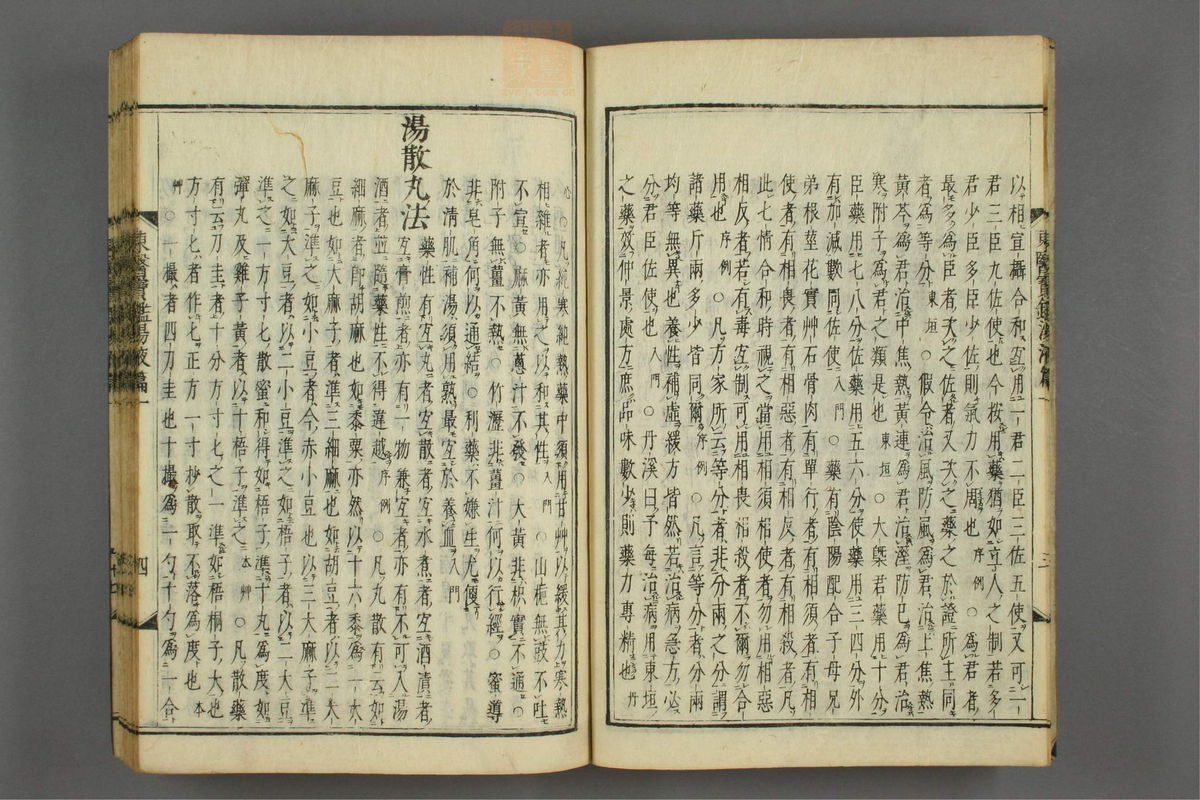 以相宣攝合和宜用一君二臣三佐五使又可一
君三臣九佐使也今按用藥猶如立人之制若多
君少臣多臣少佐則氣力不周也序例○爲君者
最多爲臣者次之佐者又次之藥之於證所主同
者爲等分東垣○假令治風防風爲君治上焦熱
黃芩爲君治中焦熱黃連爲君治濕防已爲君治
寒附子爲君之類是也東垣○大槩君藥用十分
臣藥用七八分佐藥用五六分使藥用三四分外
有加減數同佐使入門○藥有陰陽配合子母兄
弟根莖花實艸石骨肉有單行者有相須者有相
使者有相畏者有相惡者有相反者有相殺者凡
此七情合和時視之當用相須相使者勿用相惡
相反者若有毒宜制可用相畏相殺者不爾勿合
用也序例○凡方家所云等分者非分兩之分謂
諸藥斤兩多少皆同爾序例○凡言等分者分兩
均等無異也養性補虛緩方皆然若治病急方必
分君臣佐使也入門○丹溪曰予每治病用東垣
之藥效仲景處方庶品味數少則藥力專精也丹
東醫寶鑑湯液篇一
三
心○凡純寒純熱藥中須用甘艸以緩其力寒熱
相雜者亦用之以和其性入門○山梔無豉不吐
不宣○麻黃無葱汁不發○大黃非枳實不通○
附子無薑不熱○竹瀝非薑汁何以行經○蜜導
非皂角何以通結○利藥不嫌生尤便
於清肌補湯須用熟最宜於養血入門
湯散丸法
藥性有宜丸者宜散者宜水煮者宜酒漬者
宜膏煎者亦有一物兼宜者亦有不可入湯
酒者並隨藥性不得違越序例○凡丸散有云如
細麻者卽胡麻也如黍粟亦然以十六黍爲一大
豆也如大麻子者準三細麻也如胡豆者以二大
麻子準之如小豆者今赤小豆也以三大麻子準
之如大豆者以二小豆準之如梧子者以二大豆
準之一方寸匕散蜜和得如梧子準十丸爲度如
彈丸及雞子黃者以十梧子準之本艸○凡散藥
有云刀圭者十分方寸匕之一準如梧桐子大也
方寸匕者作匕正方一寸抄散取不落爲度也本
艸○一撮者四刀圭也十撮爲一勺十勺爲一合
東醫寶鑑湯液篇一
四